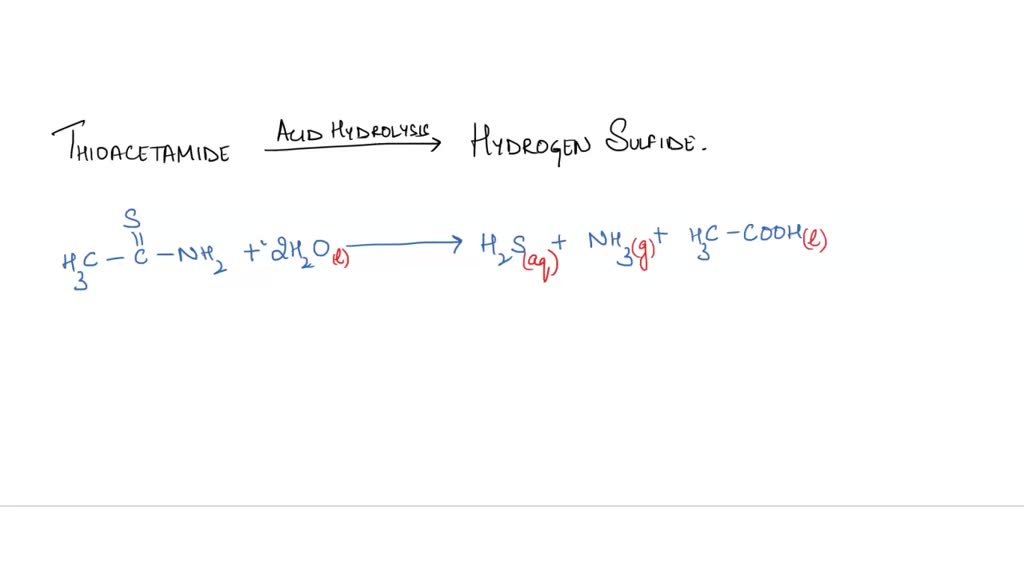 THIOACETAMIDE ACID HYDROLYSIS → HYDROGEN SULFIDE.
S
H₃C - C - NH₂ + 2H₂O(l) → H₂S(aq) + NH₃(g) + H₃C - COOH(l)